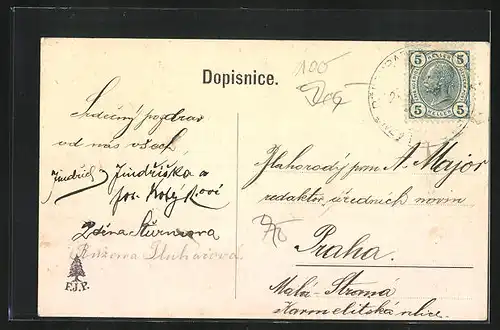 Dopisnice.
100
5 5
5 5
Srdečný pozdrav
od nás všech
Jindřich Jindřiška a
Jos. Kovy
Zdena Šturmova
Růžena
F.J.P.
Blahorodý pan A. Major
redaktor úředních novin
Praha.
Malá-Strana
Karmelitská ulice.